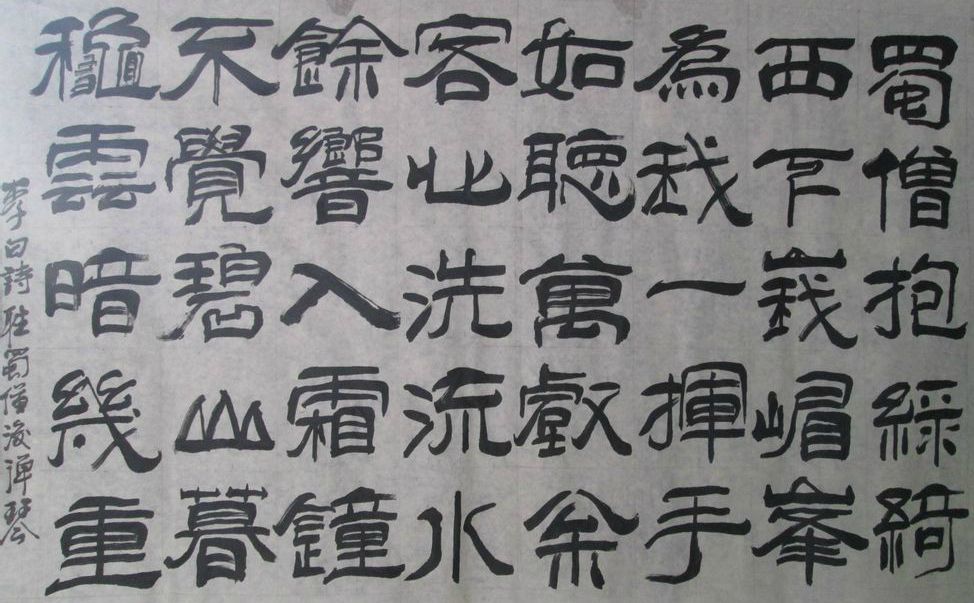 蜀僧抱綠綺
西下峩嵋峯
為我一揮手
如聽萬壑枀
客心洗流水
餘響入霜鐘
不覺碧山暮
穐雲暗幾重
李白詩聽蜀僧浚彈琴